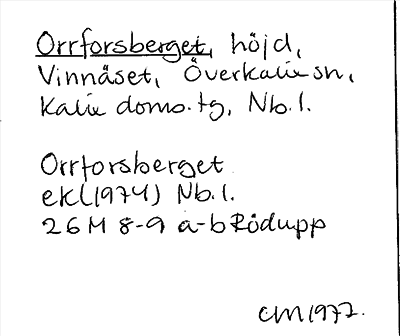 Orrforsberget, höjd,
Vinnäset, Överkalix sn,
Kalix doms.tg, Nb.l.
Orrforsberget
ekl(1974) Nb.l.
26M 8-9 a-b Rödupp
CM1977.